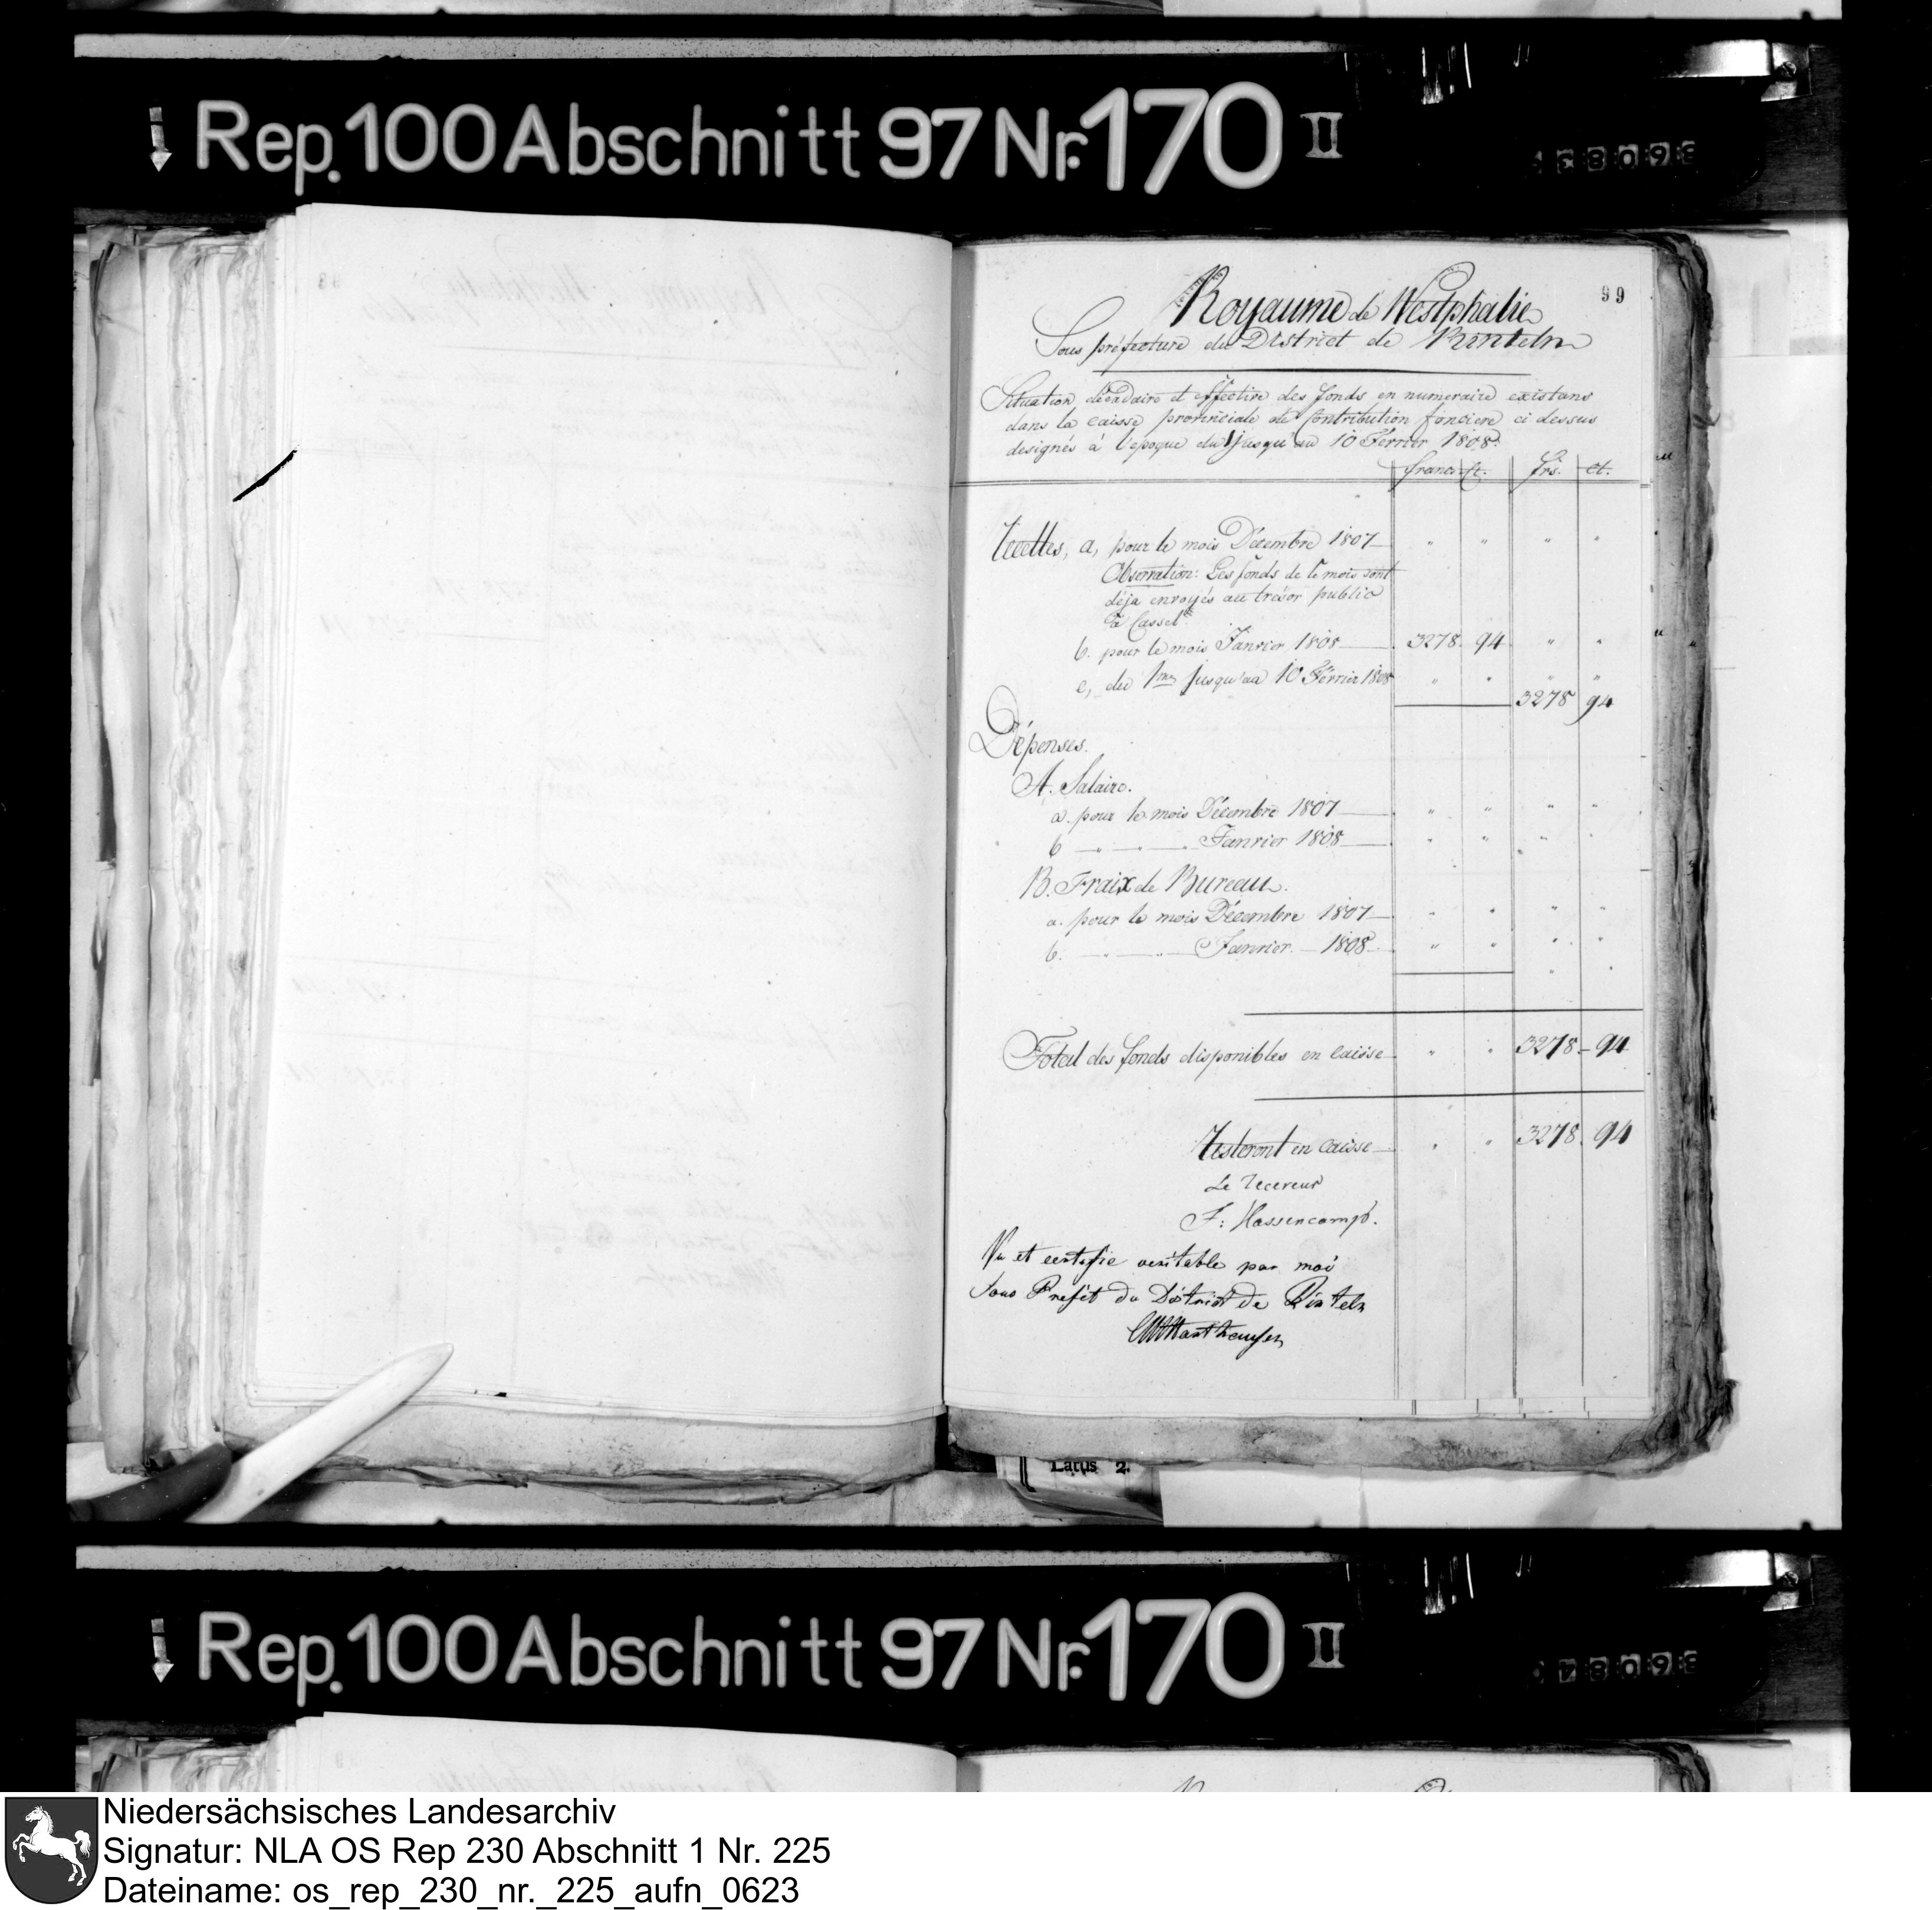 Rep. 100 Abschnitt 97 Nr. 170 II
99
Royaume de Westphalie
Sous préfecture du District de Rinteln
Situation décadaire et effective des fonds en numeraire existans
dans la caisse provinciale de Contribution fonciere ci dessus
designés à l'epoque du 1 jusqu'au 10 Février 1808.
francs ct. frs. ct.
Recettes, a, pour le mois Décembre 1807 " " " "
Observation: Les fonds de ce mois sont
déja envoyés au trésor public
à Cassel.
b. pour le mois Janvier 1808 3278. 94 " "
c, du 1mer jusqu'au 10 Février 1808 " " " "
3278 94
Dépenses.
A. Salaire.
a. pour le mois Décembre 1807 " " " "
b — " — " — Janvier 1808 " " " "
B. Fraix de Bureau.
a. pour le mois Décembre 1807 " " " "
b. — " — " — Janvier — 1808 " " " "
" "
Total des fonds disponibles en caisse " " 3278 - 94
Resteront en caisse " " 3278. 94
Le Receveur
F: Hassencamp.
Vu et certifie veritable par moi
Sous Prefét du District de Rinteln
Latus 2.
Rep. 100 Abschnitt 97 Nr. 170 II
Niedersächsisches Landesarchiv
Signatur: NLA OS Rep 230 Abschnitt 1 Nr. 225
Dateiname: os_rep_230_nr._225_aufn_0623